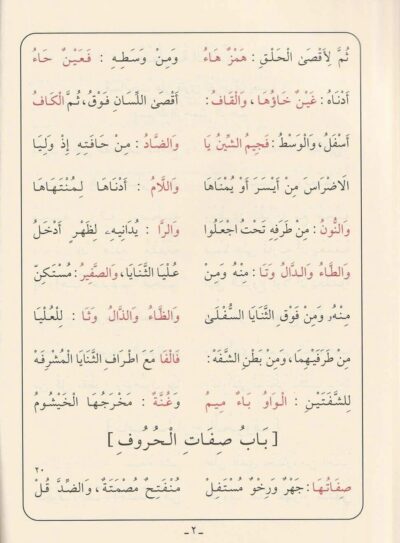 ثُمَّ لِأَقْصَى الْحَلْقِ : هَمْزٌ هَاءُ وَمِنْ وَسَطِهِ : فَعَيْنٌ حَاءُ
أَدْنَاهُ : غَيْنٌ خَاؤُهَا ، وَالْقَافُ : أَقْصَى اللِّسَانِ فَوْقُ ، ثُمَّ الْكَافُ
أَسْفَلُ ، وَالْوَسْطُ : فَجِيمُ الشِّينُ يَا وَالضَّادُ : مِنْ حَافَتِهِ إِذْ وَلِيَا
الَاضْرَاسَ مِنْ أَيْسَرَ أَوْ يُمْنَاهَا وَاللَّامُ : أَدْنَاهَا لِمُنْتَهَاهَا
وَالنُّونُ : مِنْ طَرَفِهِ تَحْتُ اجْعَلُوا وَالرَّا : يُدَانِيهِ لِظَهْرٍ أَدْخَلُ
وَالطَّاءُ وَالدَّالُ وَتَا : مِنْهُ وَمِنْ عُلْيَا الثَّنَايَا ، وَالصَّفِيرُ : مُسْتَكِنّ
مِنْهُ وَمِنْ فَوْقِ الثَّنَايَا السُّفْلَى وَالظَّاءُ وَالذَّالُ وَثَا : لِلْعُلْيَا
مِنْ طَرَفَيْهِمَا ، وَمِنْ بَطْنِ الشَّفَهْ : فَالْفَا مَعَ اطْرَافِ الثَّنَايَا الْمُشْرِفَهْ
لِلشَّفَتَيْنِ : الْوَاوُ بَاءٌ مِيمُ وَغُنَّةٌ : مَخْرَجُهَا الْخَيْشُومُ
[ بَابُ صِفَاتِ الْحُرُوفِ ]
صِفَاتُهَا : جَهْرٌ وَرِخْوٌ مُسْتَفِلْ مُنْفَتِحٌ مُصْمَتَةٌ ، وَالضِّدَّ قُلْ ٢٠
- ٢ -